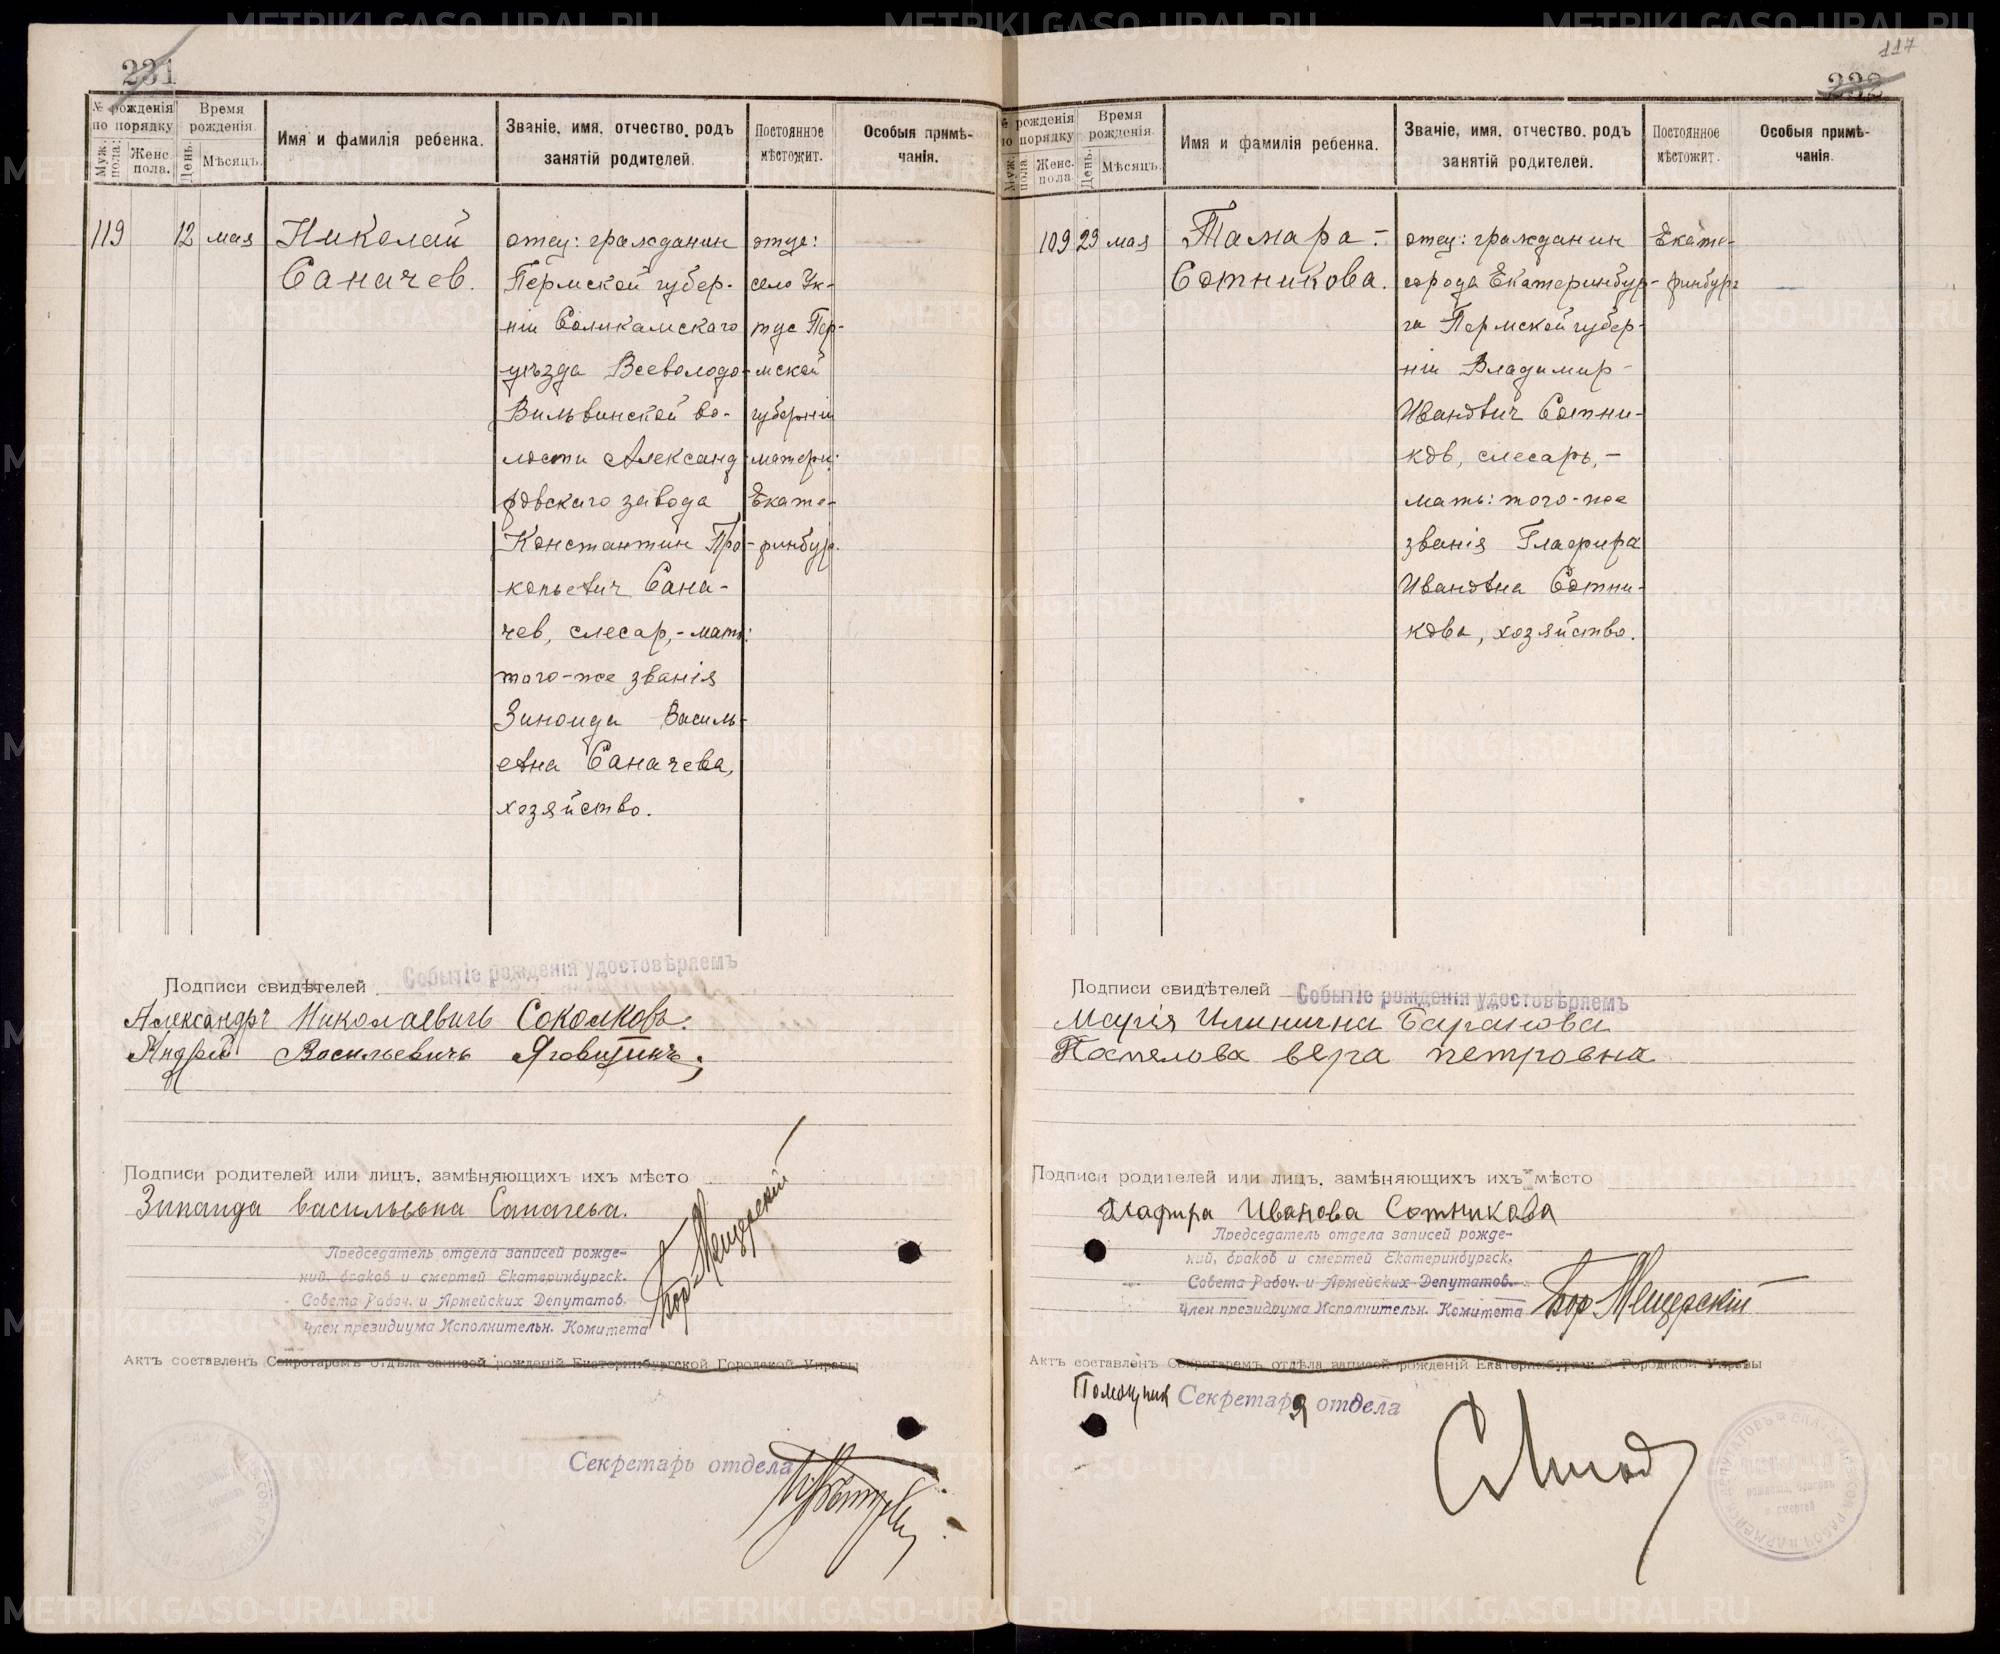 231
№ рожденія по порядку
Муж. пола.
Женс. пола.
Время рожденія.
День.
Мѣсяцъ.
Имя и фамилія ребенка.
Званіе, имя, отчество, родъ
занятій родителей.
Постоянное
мѣстожит.
Особыя примѣ-
чанія.
119
12 мая
Николай
Саначев.
отец: гражданин
Пермской губер-
ніи Соликамского
уѣзда Всеволодо-
Вильвинской во-
лости Александ
ровскаго завода
Константин Про-
копьевич Сана-
чев, слесар,- мать:
того-же званія
Зиноида Василь-
евна Саначева,
хозяйство.
отца:
село Ук-
тус Пер-
мской
губерніи
матери:
Екате-
ринбург.
Подписи свидѣтелей
Событіе рожденія удостовѣряемъ
Александръ Николаевичъ Соколковъ.
Андрей Васильевичъ
Подписи родителей или лицъ, замѣняющихъ ихъ мѣсто
Зинаида васильевна Саначева.
Председатель отдела записей рожде-
ний, браков и смертей Екатеринбургск.
Совета Рабоч. и Армейских Депутатов.
Член президиума Исполнительн. Комитета
Бор Мещерскій
Актъ составленъ Секретаремъ отдѣла записей рожденій Екатеринбургской Городской Управы
Секретарь отдела
117
232
№ рожденія по порядку
Муж. пола
Женс. пола
Время рожденія.
День.
Мѣсяцъ.
Имя и фамилія ребенка.
Званіе, имя, отчество, родъ
занятій родителей.
Постоянное
мѣстожит.
Особыя примѣ-
чанія.
109 23 мая
Тамара -
Сотникова.
отец: гражданин
города Екатеринбур-
га Пермской губер-
ніи Владимир
Иванович Сотни-
ков, слесарь, -
мать: того-же
званія Глафира
Ивановна Сотни-
кова, хозяйство.
Екате-
ринбург
Подписи свидѣтелей
Событіе рожденія удостовѣряемъ
Марія Илинична Баранова
Поспелова вера петровна
Подписи родителей или лицъ, замѣняющихъ ихъ мѣсто
Глафира Иванова Сотникова
Председатель отдела записей рожде-
ний, браков и смертей Екатеринбургск.
Совета Рабоч. и Армейских Депутатов.
Член президиума Исполнительн. Комитета
Бор Мещерскій
Актъ составленъ Секретаремъ отдѣла записей рожденій Екатеринбургской Городской Управы
Помощник Секретаря отдела
METRIKI.GASO-URAL.RU